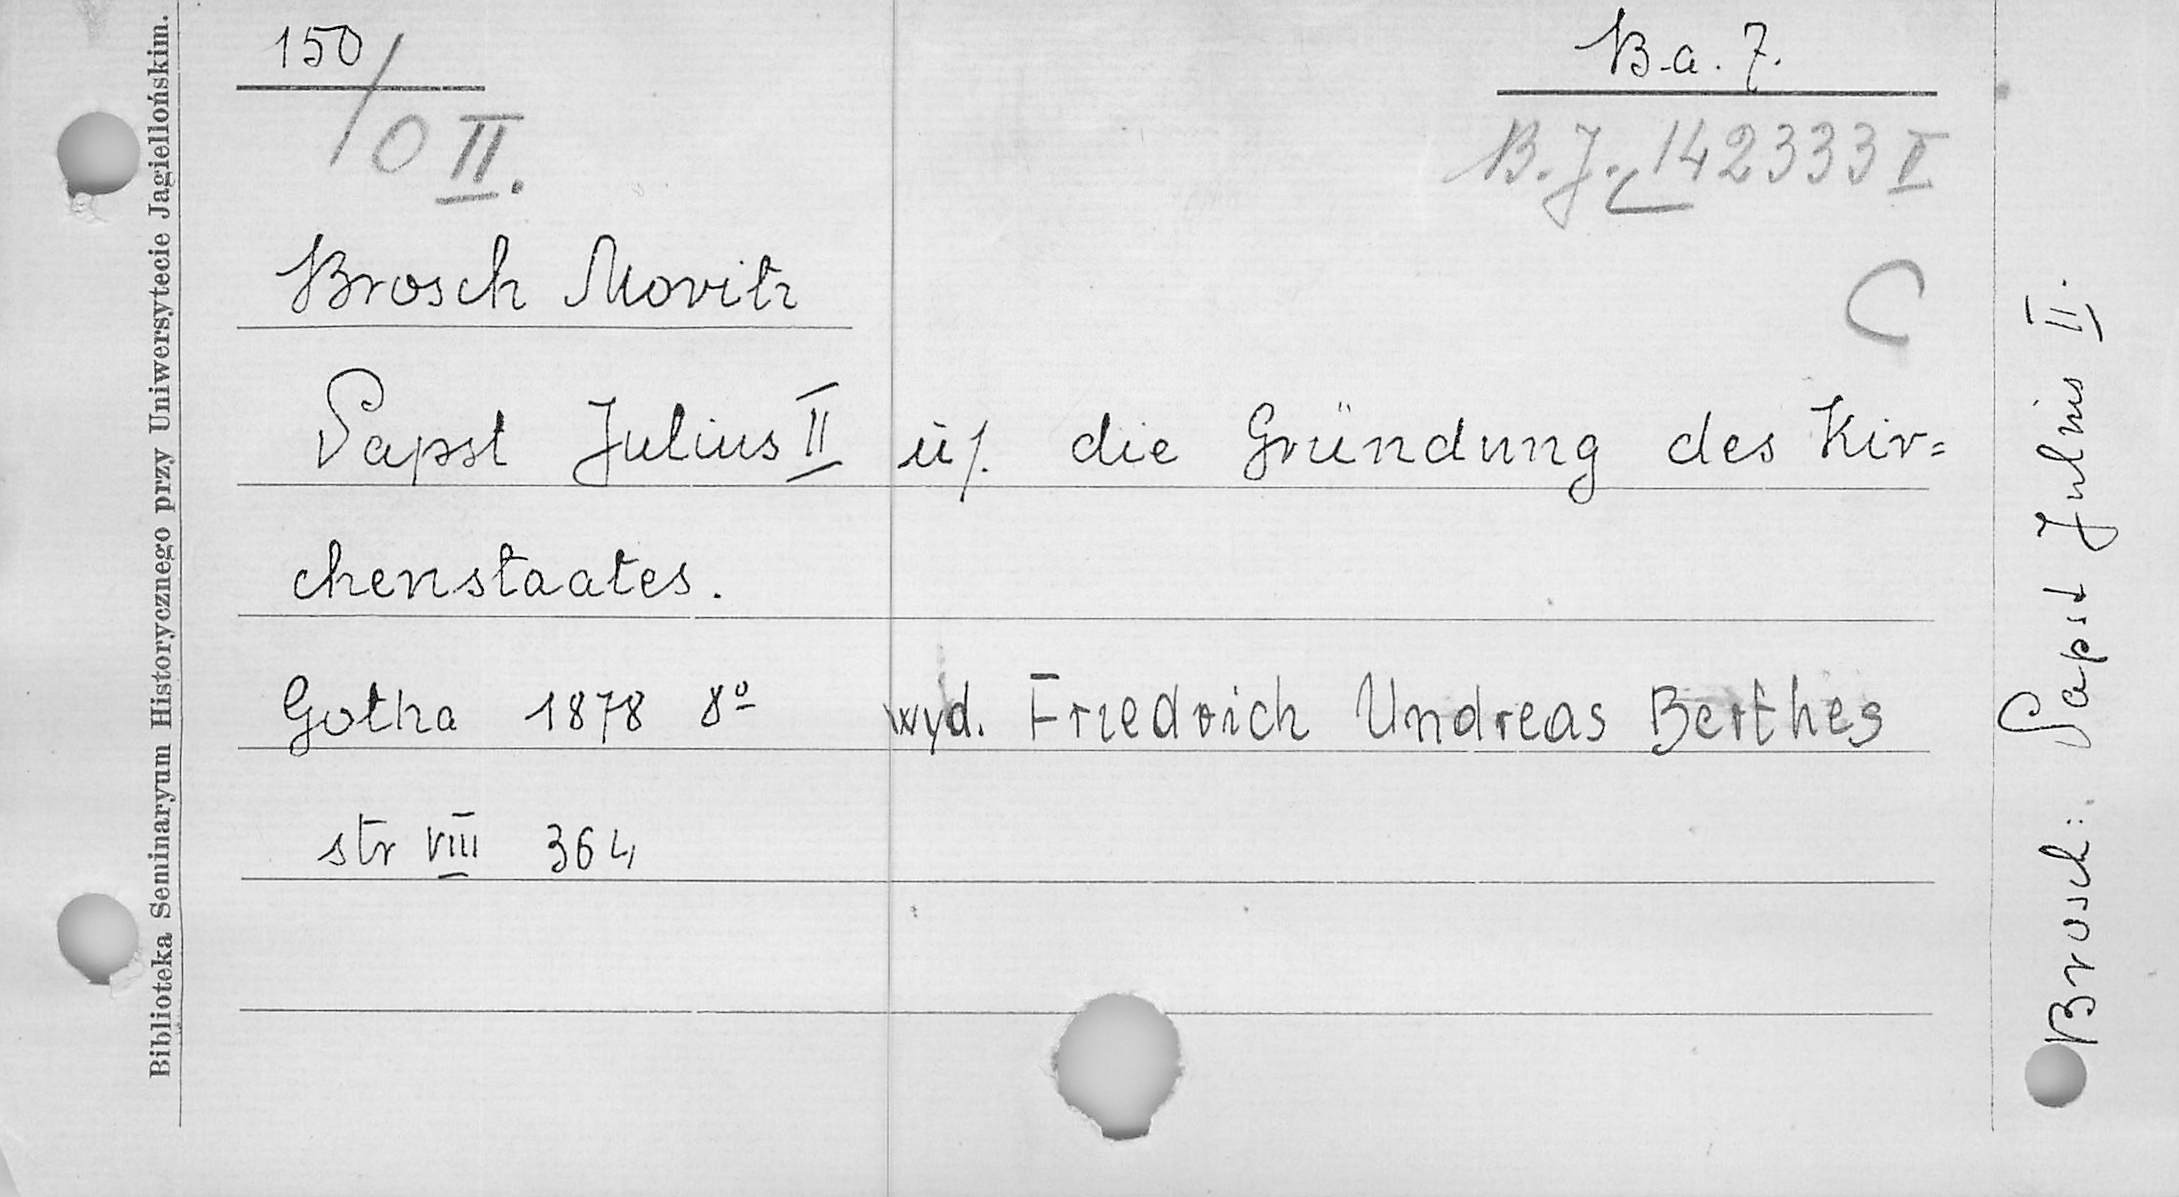 150
/O II.
B.a. 7.
B.J. 142333 I
C
Brosch Moritz
Papst Julius II u/. die Gründung des Kir=
chenstaates.
Gotha 1878 8º wyd. Friedrich Undreas Berthes
str VIII 364
Biblioteka Seminaryum Historycznego przy Uniwersytecie Jagiellońskim.
Brosch: Papst Julius II.